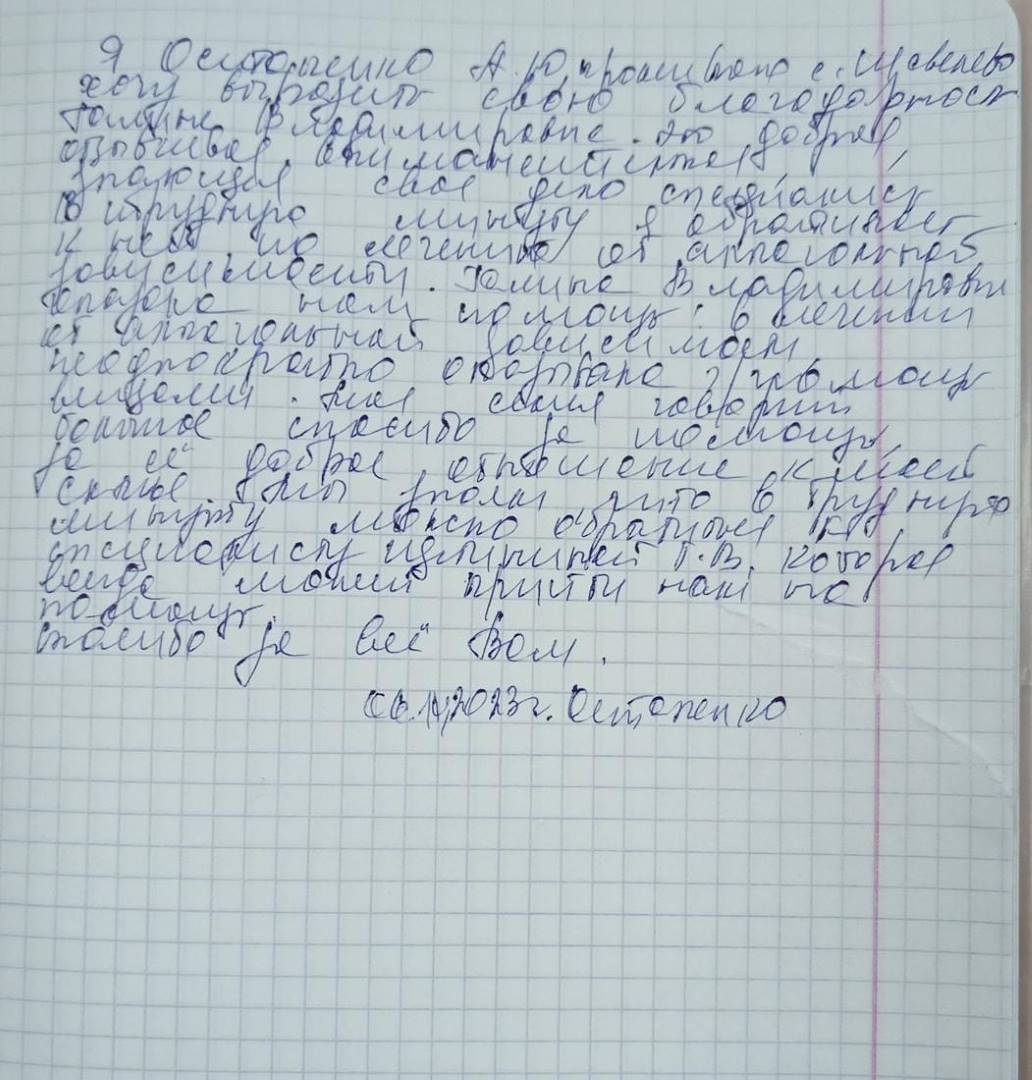 Я Остопенко А.Ю, проживаю с.
хочу выразить свою благодарност
Галине Владимировне. Это добрая,
отзывчивая,
знающая свое дело специалист
В трудную минуту я
к ней по лечению от алкогольной
зависимости. Галина Владимировн
оказала нам помощь в лечении
от алкогольной зависимости,
неоднократно оказывала помощь
Моя семья говорит
большое спасибо за помощь,
за её доброе отношение к моей
семье. Мы знаем что в трудную
минуту можно обратится к
специалисту Г.В. которая
всегда может прийти нам на
помощь.
Спасибо за всё Вам.
2023г. Остопенко